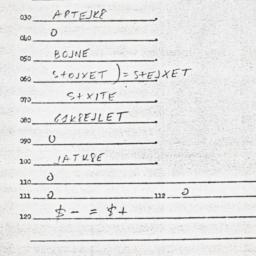 030 APTEJK8
040 0
050 BOJNE
060 S+OJXET ) = S+EJXET
070 S+XITE
080 GJK8EJLET
090 0
100 JATK8E
110 0
111 0 112 0
120 $ - = $+